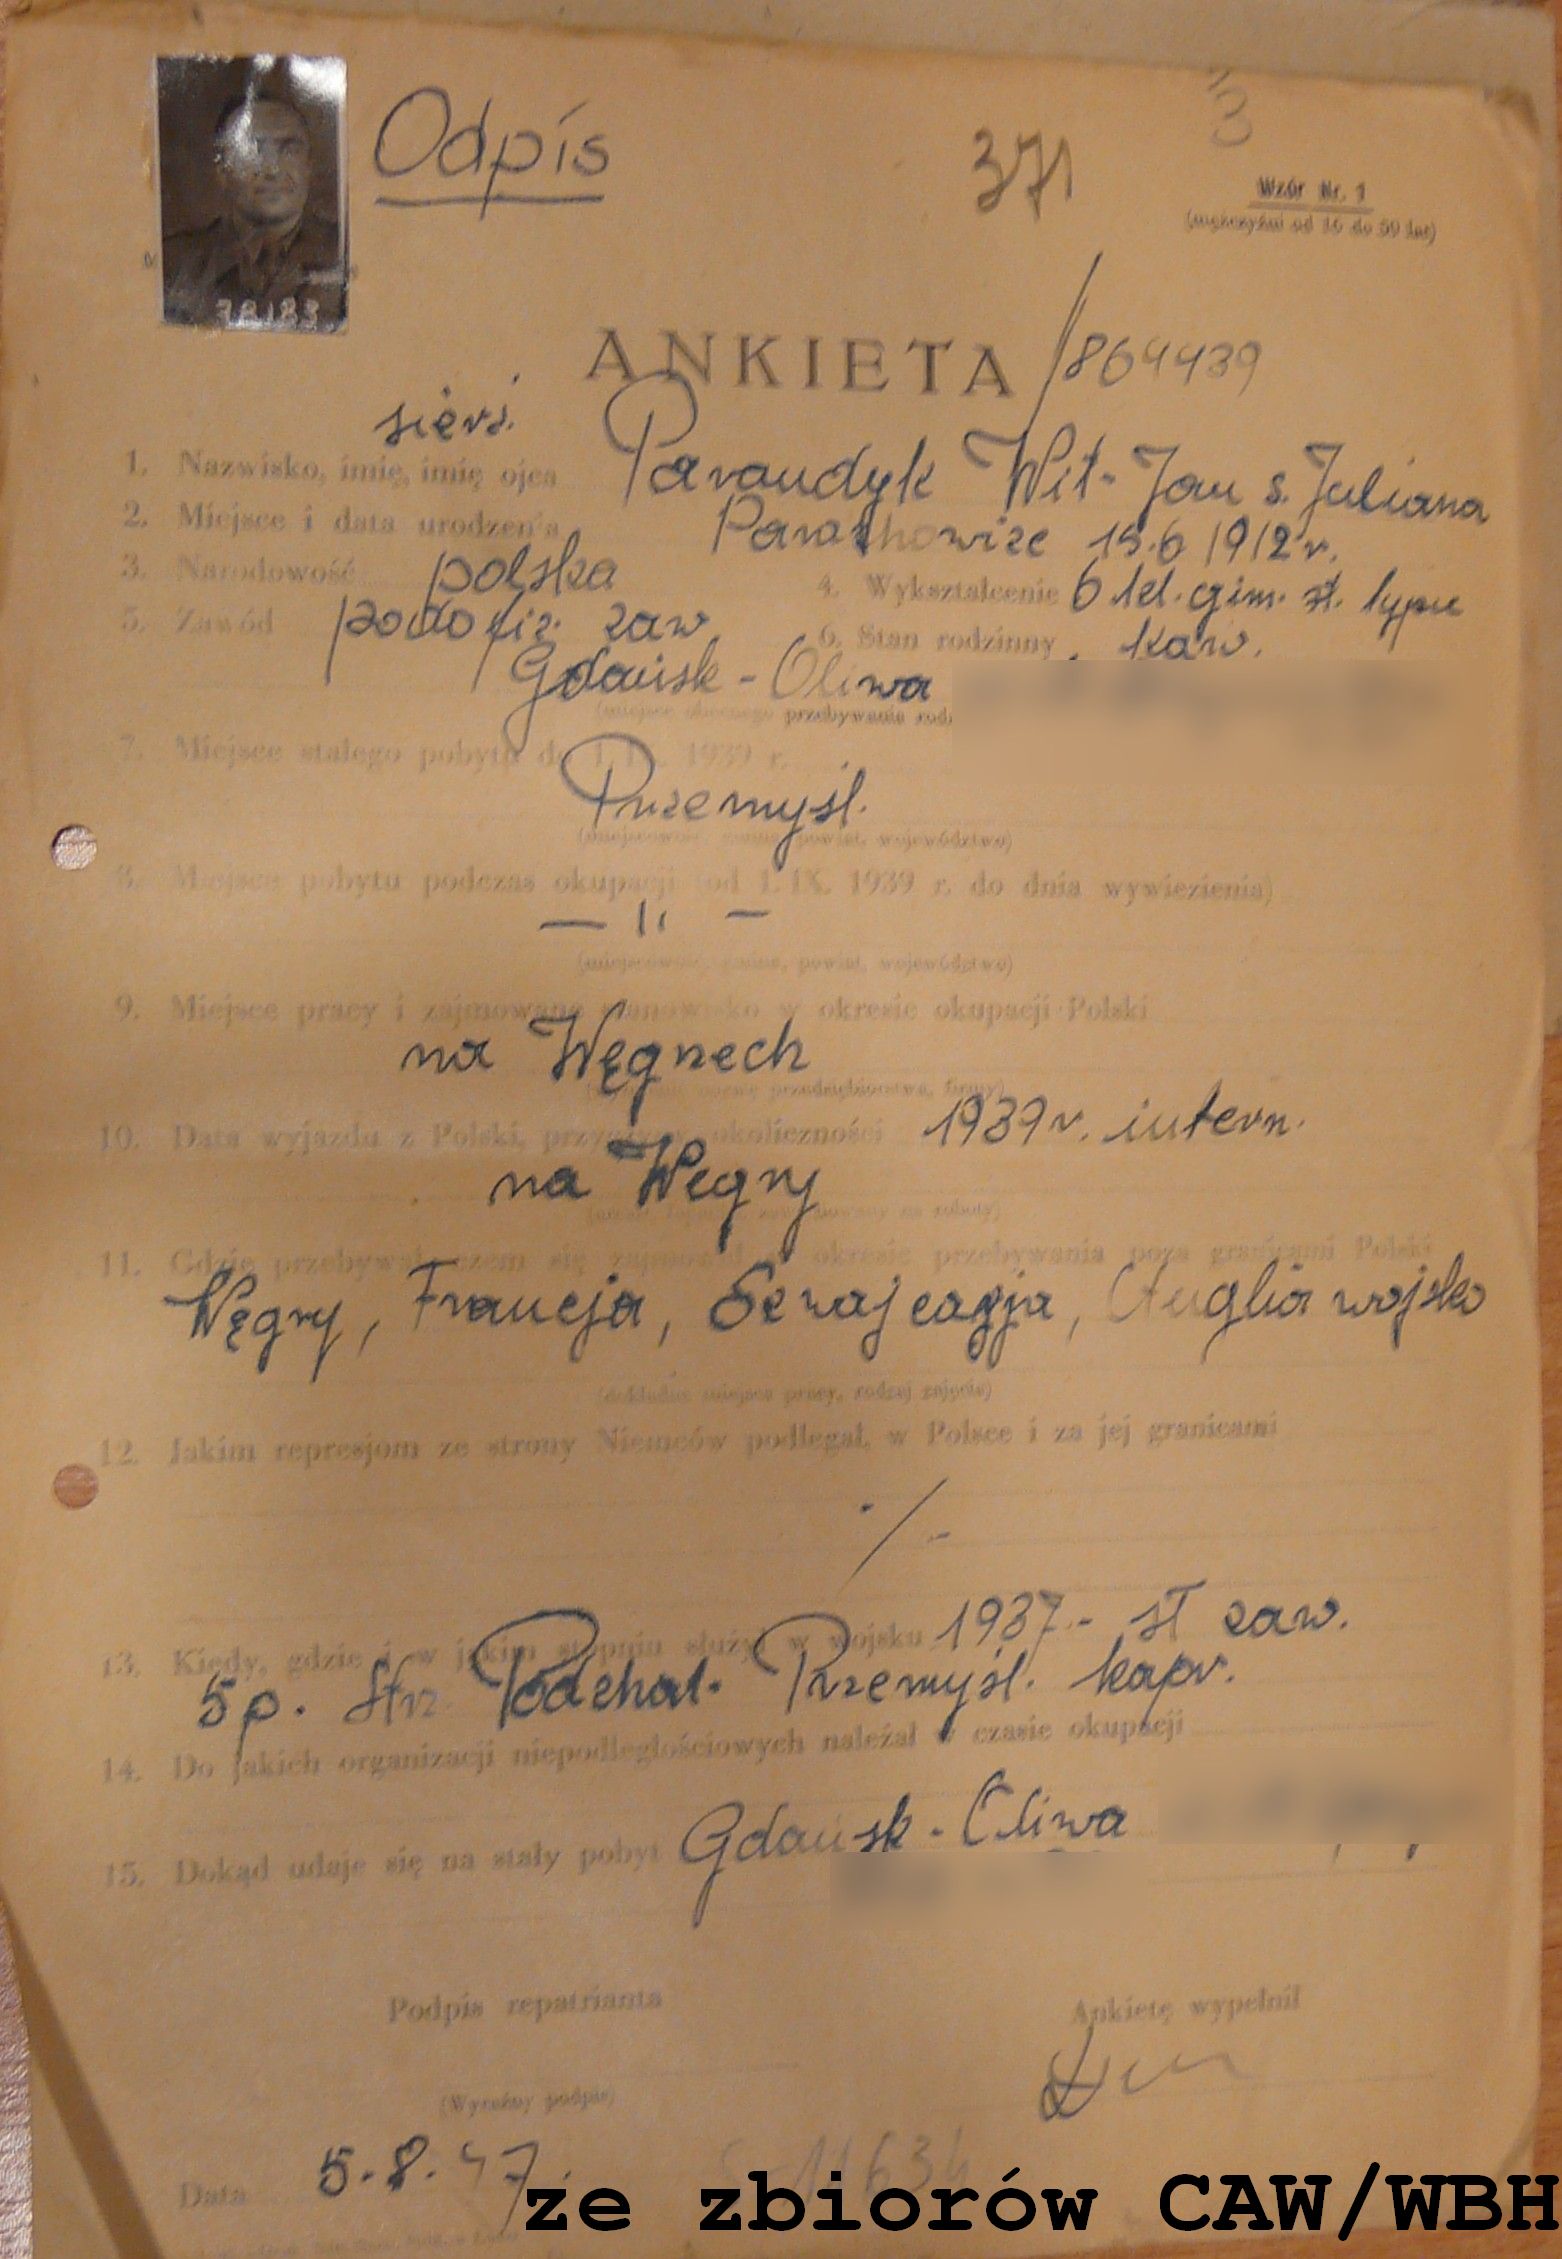 Odpis
371
3
Wzór Nr. 1
(mężczyźni od 16 do 50 lat)
78183
ANKIETA /864439
sierż.
1. Nazwisko, imię, imię ojca Paraudyk Wit-Jan s. Juliana
2. Miejsce i data urodzenia 15.6 1912 r.
3. Narodowość polska
4. Wykształcenie 6 kl. gim. st. typu
5. Zawód podofic. zaw.
6. Stan rodzinny kaw.
Gdańsk - Oliwa
(miejsce obecnego przebywania rodz
7. Miejsce stałego pobytu do 1. IX. 1939 r.
Przemyśl.
(miejscowość, gmina, powiat, województwo)
8. Miejsce pobytu podczas okupacji (od 1. IX. 1939 r. do dnia wywiezienia)
— 11 —
(miejscowość, gmina, powiat, województwo)
9. Miejsce pracy i zajmowane stanowisko w okresie okupacji Polski
na Węgrzech
przedsiębiorstwa, firmy)
10. Data wyjazdu z Polski, przyczyny okoliczności 1939 r. intern.
na Węgry
na roboty)
11. Gdzie przebywał, czem się zajmował w okresie przebywania poza granicami Polski
Węgry, Francja, Szwajcarja, Anglia wojsko
(dokładne miejsce pracy, rodzaj zajęcia)
12. Jakim represjom ze strony Niemców podlegał, w Polsce i za jej granicami
./-
13. Kiedy, gdzie i w jakim stopniu służył w wojsku 1937 - sł zaw.
5 p. Strz. Podhal. Przemyśl. kapr.
14. Do jakich organizacji niepodległościowych należał w czasie okupacji
15. Dokąd udaje się na stały pobyt Gdańsk - Oliwa
Podpis repatrianta
Ankietę wypełnił
(Wyraźny podpis)
Data 5.8.47.
ze zbiorów CAW/WBH